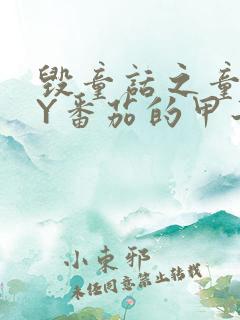 毁童话之童
Y番茄的甲
小束邪
未经同意禁止转载